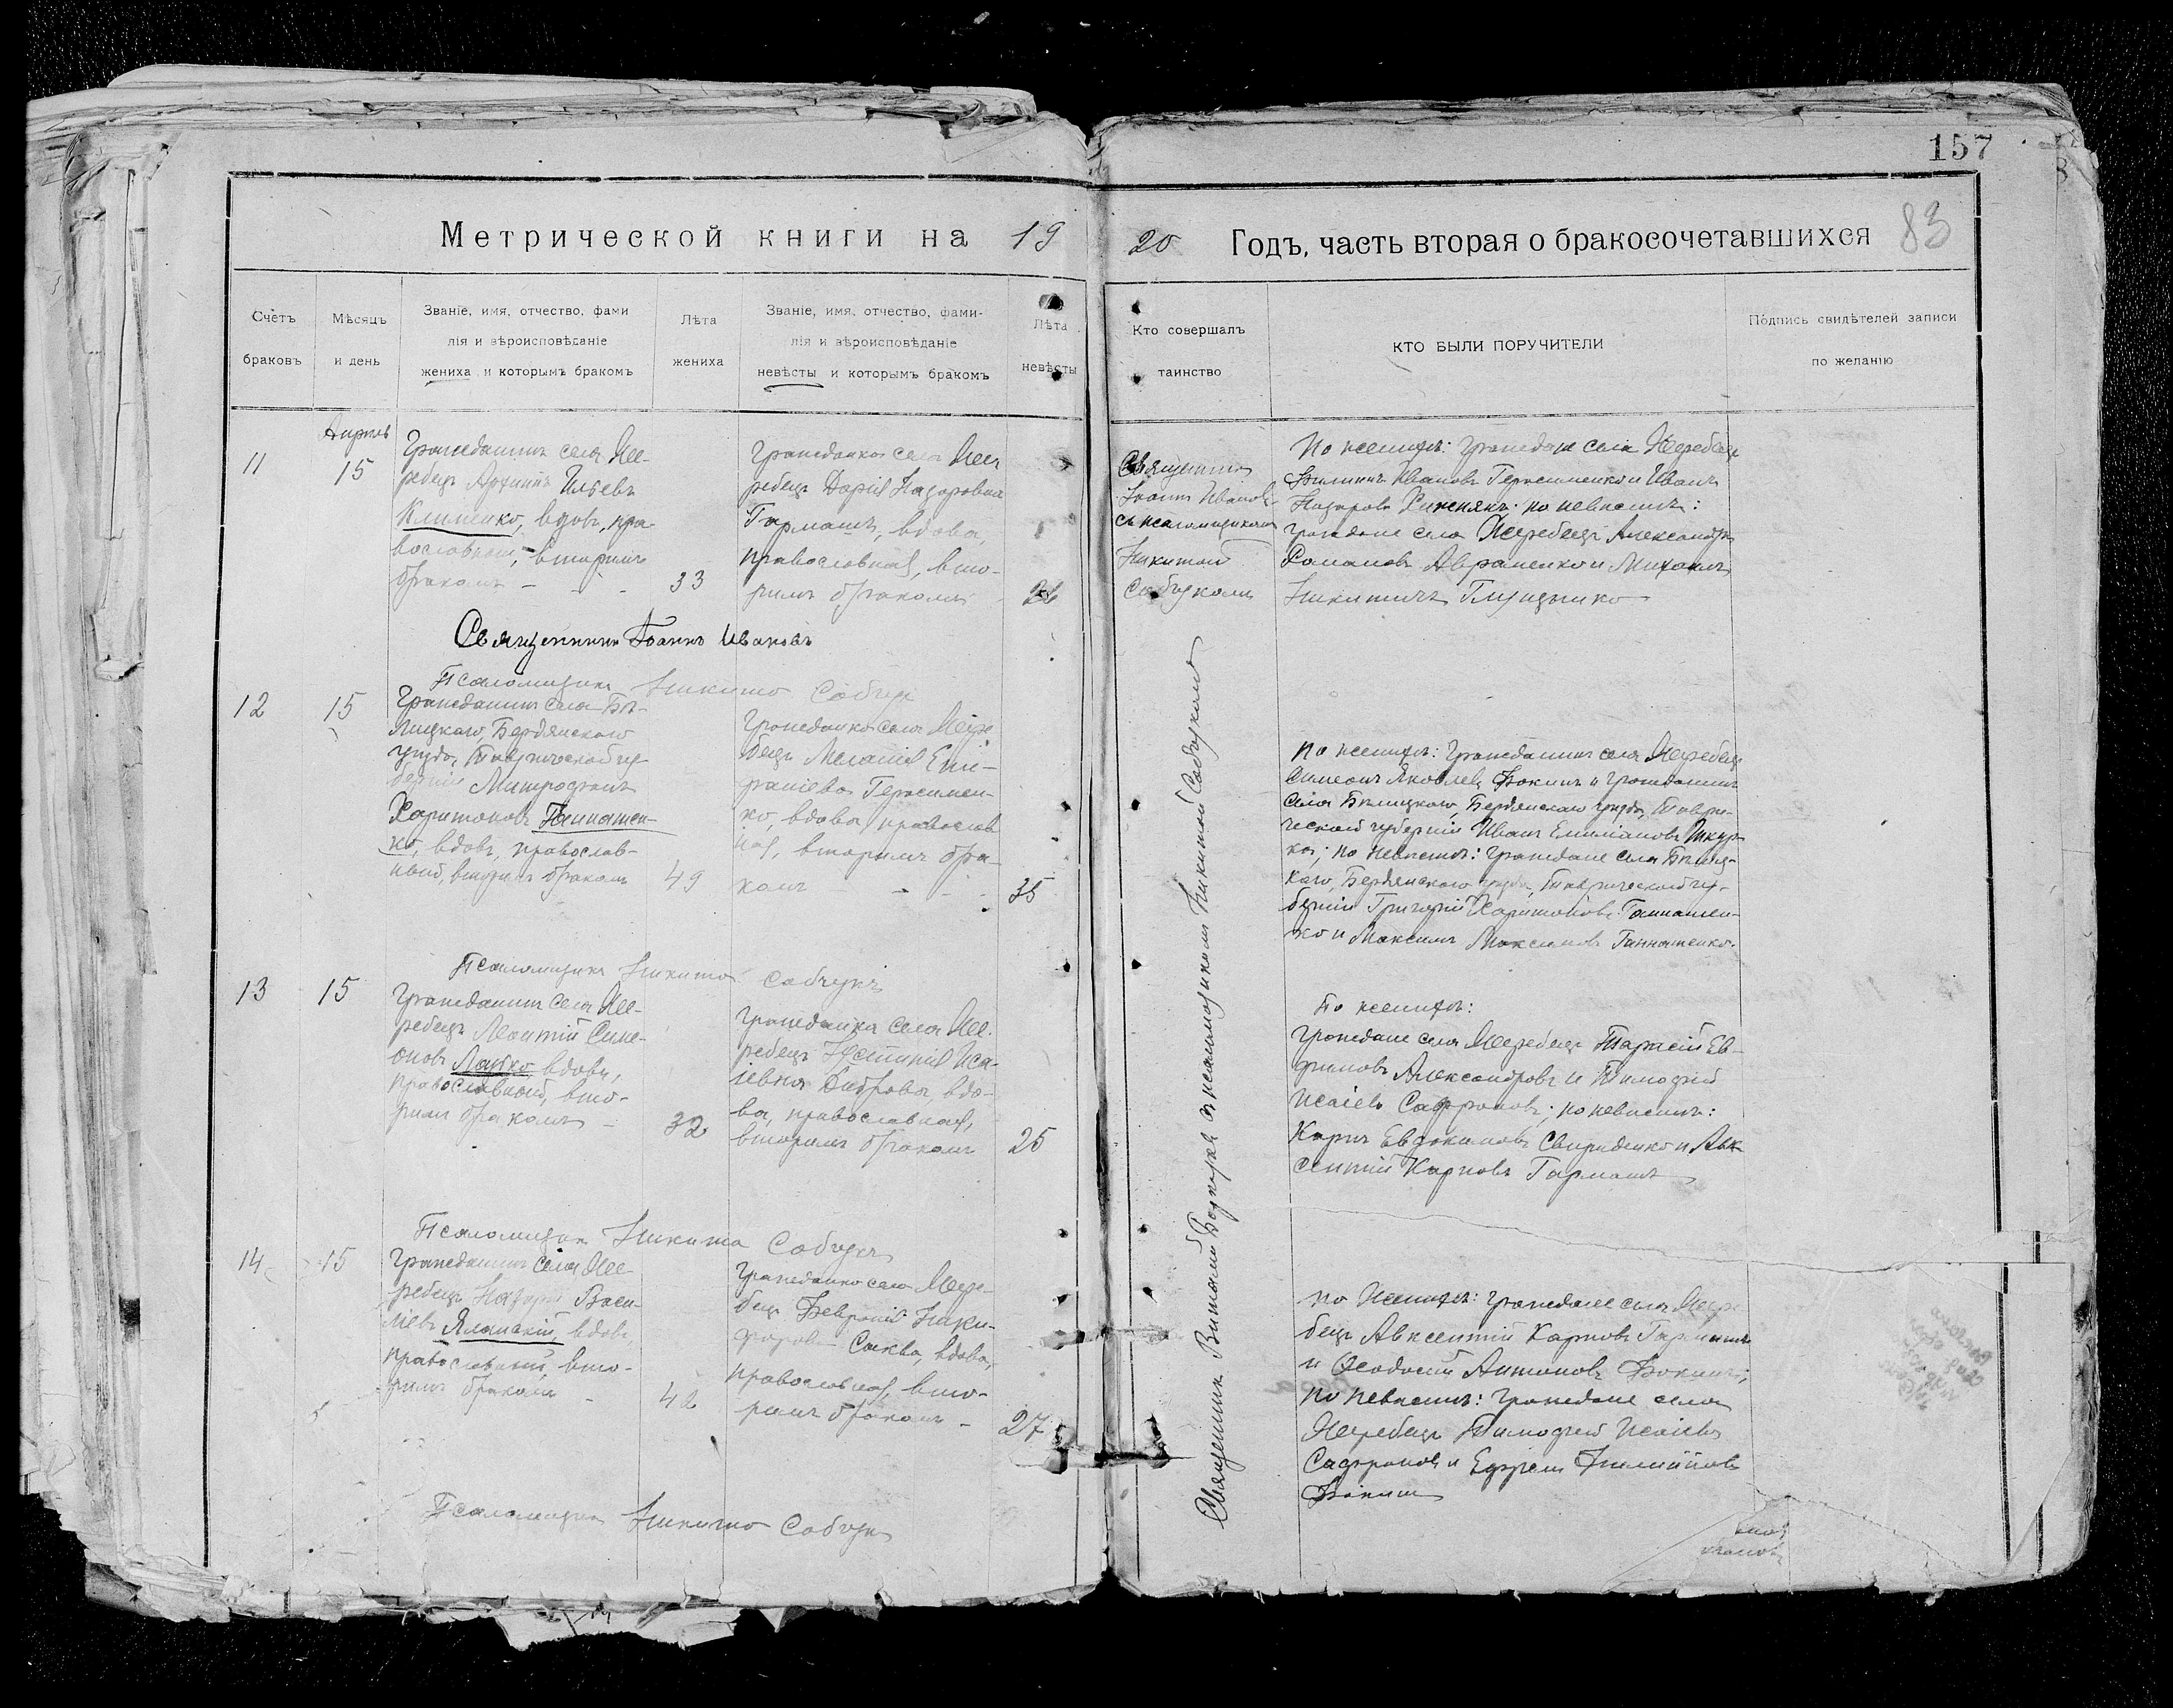 157
Метрической книги на 19
20 Годъ, часть вторая о бракосочетавшихся 83
Счетъ браковъ
Мѣсяцъ и день
Званіе, имя, отчество, фами
лія и вѣроисповѣданіе
жениха и которымъ бракомъ
Лѣта жениха
Званіе, имя, отчество, фами-
лія и вѣроисповѣданіе
невѣсты и которымъ бракомъ
Лѣта невѣсты
Кто совершалъ
таинство
КТО БЫЛИ ПОРУЧИТЕЛИ
Подпись свидѣтелей записи
по желанію
11
15
Гражданинъ села Же-
ребецъ Ильевъ
Клименко, вдовъ, пра-
вославный, вторымъ
бракомъ - - -
33
Гражданка села Же
ребецъ Дарія Назаровна
Гармашъ, вдова,
православная, вто-
рымъ бракомъ -
Священникъ
Іоаннъ Ивановъ
съ псаломщикомъ
Никитой
Сабчукомъ
По женихѣ: Граждане села Жеребецъ
Филиппъ Ивановъ Герасименко и Иванъ
Назаровъ по невѣстѣ:
граждане села Жеребецъ Александръ
Романовъ Авраменко и Михаилъ
Никитичъ
Священникъ Іоаннъ Ивановъ
Псаломщикъ Никита Сабчукъ
12
15
Гражданинъ села Бѣ-
лицкаго, Бердянскаго
уѣзда, Таврической гу-
берніи Митрофанъ
Харитоновъ
ко, вдовъ, православ-
ный, вторымъ бракомъ
49
Гражданка села Жере
бецъ Меланія Епи-
Герасимен-
ко, вдова, православ
ная, вторымъ бра-
комъ - - -
35
По женихѣ: Гражданинъ села Жеребецъ
Симеонъ Яковлевъ Фокинъ и гражданинъ
села Бѣлицкаго, Бердянскаго уѣзда, Таври-
ческой губерніи Иванъ Шкур-
ка; по невѣстѣ: граждане села Бѣлиц-
каго, Бердянскаго уѣзда, Таврической гу-
берніи Григорій Харитоновъ
ко и Максимъ Максимовъ
Псаломщикъ Никита Сабчукъ
13
15
Гражданинъ села Же-
ребецъ Леонтій Симе-
оновъ Лайко, вдовъ,
православный, вто-
рымъ бракомъ -
32
Гражданка села Же-
ребецъ Устинія Иса-
іевна Диброва, вдо-
ва, православная,
вторымъ бракомъ
25
По женихѣ:
Граждане села Жеребецъ Тарасій Ев-
фимовъ Александровъ и Тимофей
Исаіевъ Сафроновъ; по невѣстѣ:
Карпъ Евдокимовъ Свириденко и Авк-
сентій Карповъ Гармашъ
Псаломщикъ Никита Сабчукъ
14
15
Гражданинъ села Же-
ребецъ Назарій Васи-
ліевъ Яланскій, вдовъ,
православный, вто-
рымъ бракомъ -
42
Гражданка села Жере-
бецъ Февронія Ники-
форова Саква, вдова,
православная, вто-
рымъ бракомъ -
27
По женихѣ: Граждане села Жере-
бецъ Авксентій Карповъ Гармашъ
и Феодосій Антоновъ Фокинъ;
по невѣстѣ: Граждане села
Жеребецъ Тимофей Исаіевъ
Сафроновъ и Ефремъ Филипповъ
Фокинъ
Псаломщикъ Никита Сабчукъ
Священникъ Виталій съ псаломщикомъ Никитой Сабчукомъ